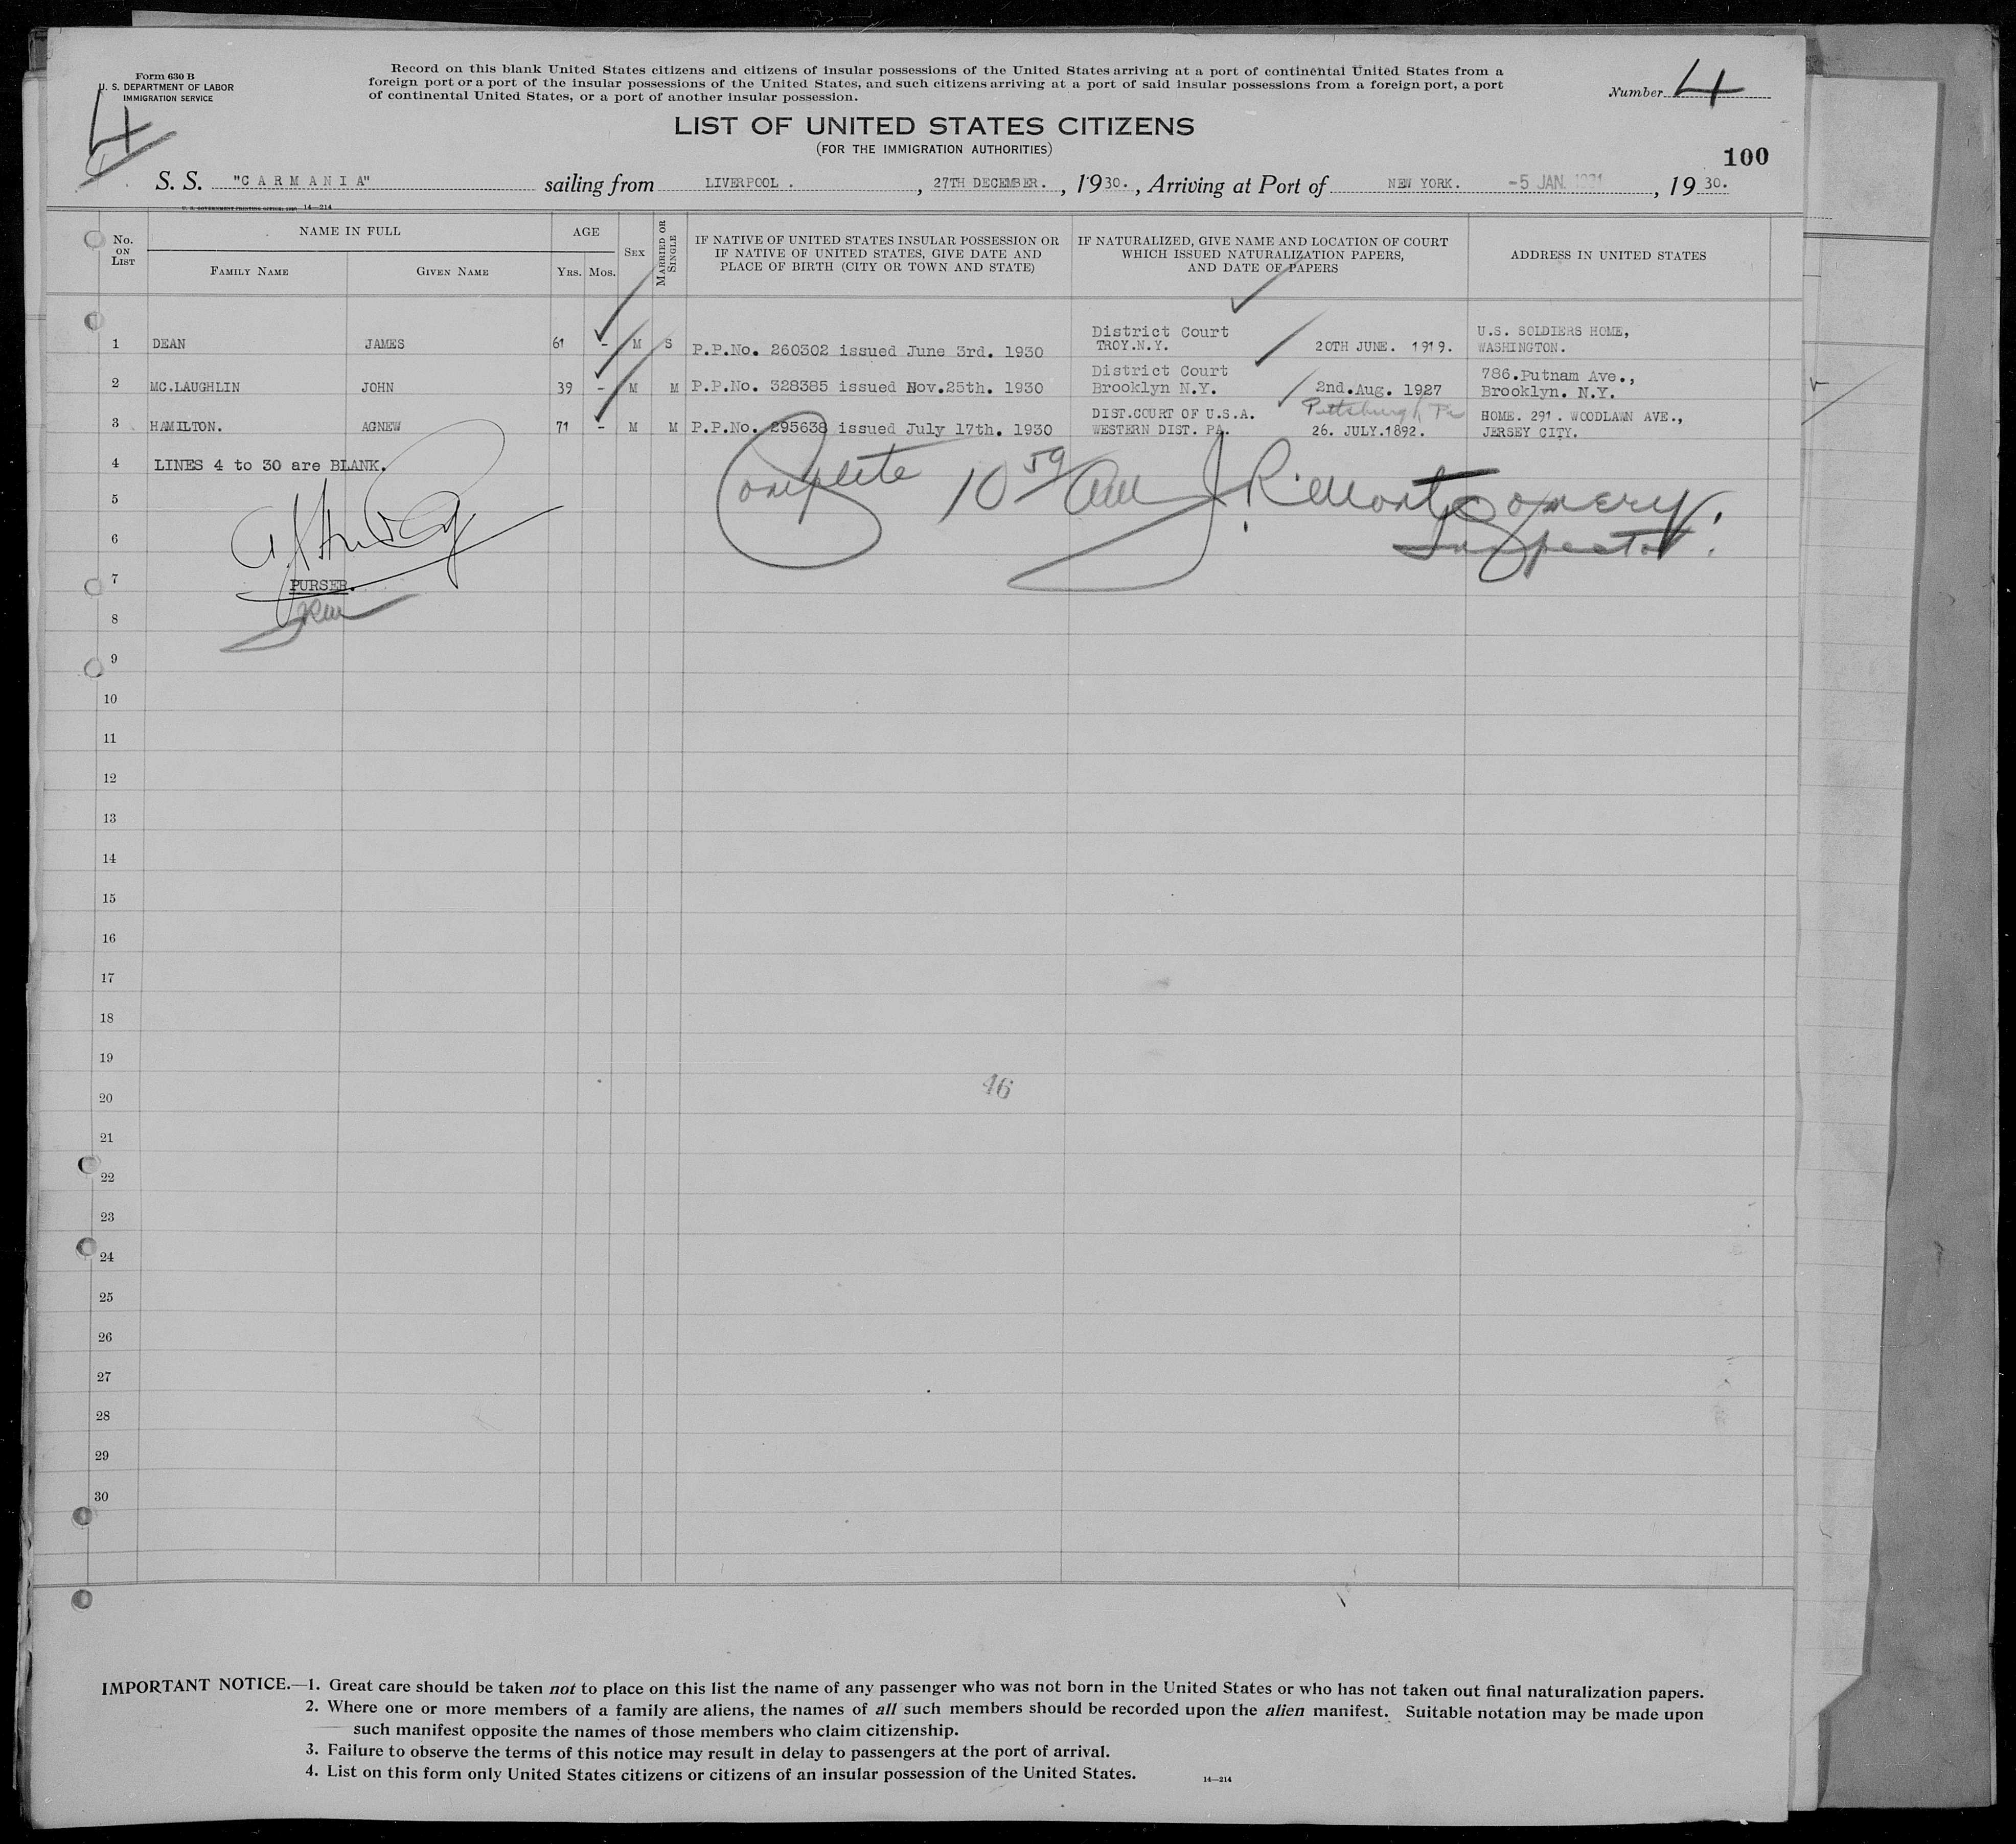 Form 630 B
U. S. DEPARTMENT OF LABOR
IMMIGRATION SERVICE
4
Record on this blank United States citizens and citizens of insular possessions of the United States arriving at a port of continental United States from a
foreign port or a port of the insular possessions of the United States, and such citizens arriving at a port of said insular possessions from a foreign port, a port
of continental United States, or a port of another insular possession.
Number 4
LIST OF UNITED STATES CITIZENS
(FOR THE IMMIGRATION AUTHORITIES)
100
S. S. "CARMANIA" sailing from LIVERPOOL . , 27TH DECEMBER. , 1930. , Arriving at Port of NEW YORK. -5 JAN. 1931 , 19 30.
14—214
No. ON LIST NAME IN FULL AGE SEX MARRIED OR SINGLE IF NATIVE OF UNITED STATES INSULAR POSSESSION OR IF NATIVE OF UNITED STATES, GIVE DATE AND PLACE OF BIRTH (CITY OR TOWN AND STATE) IF NATURALIZED, GIVE NAME AND LOCATION OF COURT WHICH ISSUED NATURALIZATION PAPERS, AND DATE OF PAPERS ADDRESS IN UNITED STATES
FAMILY NAME GIVEN NAME YRS. MOS.
1 DEAN JAMES 61 - M S P.P.No. 260302 issued June 3rd. 1930 District Court TROY.N.Y. 20TH JUNE. 1919. U.S. SOLDIERS HOME, WASHINGTON.
2 MC.LAUGHLIN JOHN 39 - M M P.P.No. 328385 issued Nov.25th. 1930 District Court Brooklyn N.Y. 2nd.Aug. 1927 786.Putnam Ave., Brooklyn. N.Y.
3 HAMILTON. AGNEW 71 - M M P.P.No. 295638 issued July 17th. 1930 DIST.COURT OF U.S.A. WESTERN DIST. PA. Pittsburgh Pa 26. JULY.1892. HOME. 291. WOODLAWN AVE., JERSEY CITY.
4 LINES 4 to 30 are BLANK.
Complete 10 59 AM J. R. Montgomery.
Inspector.
5
6
7 PURSER.
JRM
8
9
10
11
12
13
14
15
16
17
18
19
46
20
21
22
23
24
25
26
27
28
29
30
IMPORTANT NOTICE.—1. Great care should be taken not to place on this list the name of any passenger who was not born in the United States or who has not taken out final naturalization papers.
2. Where one or more members of a family are aliens, the names of all such members should be recorded upon the alien manifest. Suitable notation may be made upon
such manifest opposite the names of those members who claim citizenship.
3. Failure to observe the terms of this notice may result in delay to passengers at the port of arrival.
4. List on this form only United States citizens or citizens of an insular possession of the United States.
14—214